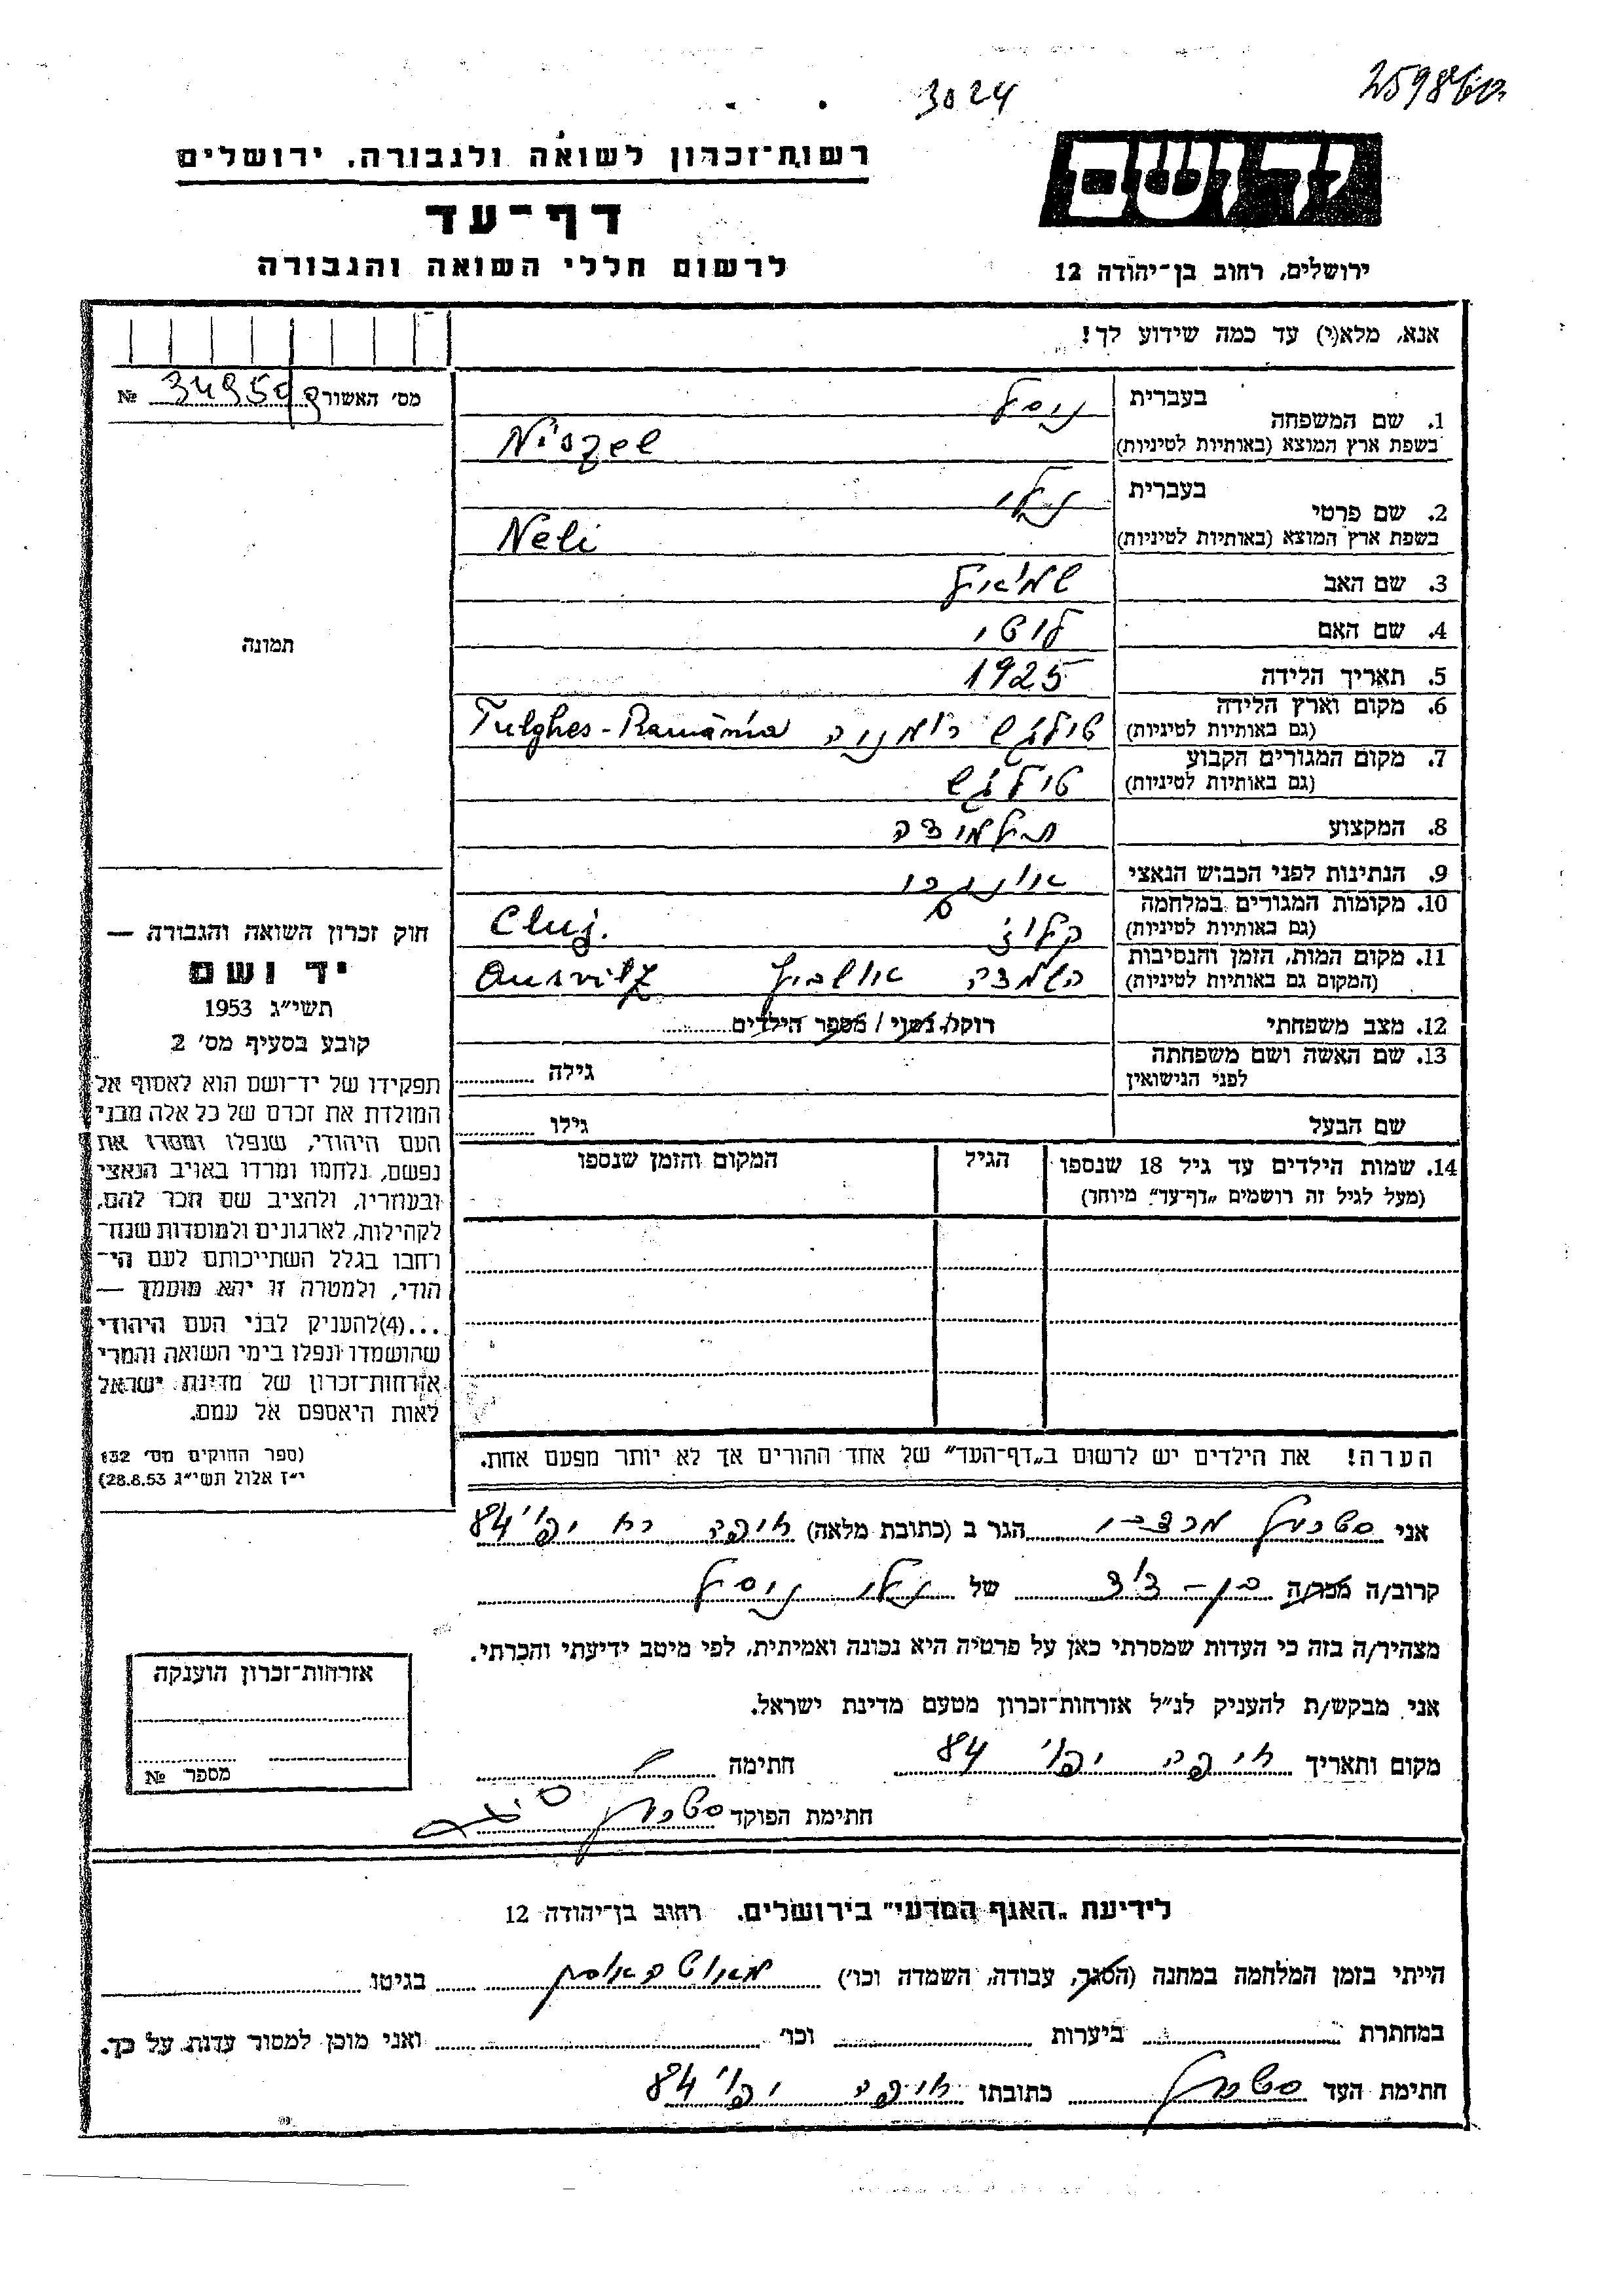 3024
259860
יד ושם
רשות־זכרון לשואה ולגבורה, ירושלים
דף־עד
לרשום חללי השואה והגבורה
ירושלים, רחוב בן־יהודה 12
אנא, מלא(י) עד כמה שידוע לך!
מס׳ האשור № 34959
1. שם המשפחה בעברית ניסל
בשפת ארץ המוצא (באותיות לטיניות) Niszel
2. שם פרטי בעברית נלי
בשפת ארץ המוצא (באותיות לטיניות) Neli
3. שם האב שמואיל
4. שם האם
5. תאריך הלידה 1925
6. מקום וארץ הלידה (גם באותיות לטיניות) טולגש רומניה Tulghes - România
7. מקום המגורים הקבוע (גם באותיות לטיניות) טולגש
8. המקצוע תלמידה
9. הנתינות לפני הכבוש הנאצי
10. מקומות המגורים במלחמה (גם באותיות לטיניות) קלוז׳ Cluj.
11. מקום המות, הזמן והנסיבות (המקום גם באותיות לטיניות) השמדה אושביץ Ausvitz
12. מצב משפחתי רווק/ נשוי / מספר הילדים
13. שם האשה ושם משפחתה לפני הנישואין גילה
שם הבעל גילו
14. שמות הילדים עד גיל 18 שנספו הגיל המקום והזמן שנספו
(מעל לגיל זה רושמים „דף־עד״ מיוחד)
הערה! את הילדים יש לרשום ב„דף־העד״ של אחד ההורים אך לא יותר מפעם אחת.
תמונה
חוק זכרון השואה והגבורה —
יד ושם
תשי״ג 1953
קובע בסעיף מס׳ 2
תפקידו של יד־ושם הוא לאסוף אל
המולדת את זכרם של כל אלה מבני
העם היהודי, שנפלו ומסרו את
נפשם, נלחמו ומרדו באויב הנאצי
ובעוזריו, ולהציב שם וזכר להם,
לקהילות, לארגונים ולמוסדות שנח־
רבו בגלל השתייכותם לעם הי־
הודי, ולמטרה זו יהא מוסמך —
...(4)להעניק לבני העם היהודי
שהושמדו ונפלו בימי השואה והמרי
אזרחות־זכרון של מדינת ישראל
לאות היאספם אל עמם.
(ספר החוקים מס׳ 132
י״ז אלול תשי״ג 28.8.53)
אני הגר ב (כתובת מלאה) חיפה יפו 84
קרוב/ה מכר/ה בן-דוד של נלי ניסל
מצהיר/ה בזה כי העדות שמסרתי כאן על פרטיה היא נכונה ואמיתית, לפי מיטב ידיעתי והכרתי.
אני מבקש/ת להעניק לנ״ל אזרחות־זכרון מטעם מדינת ישראל.
מקום ותאריך חיפה יפו 84 חתימה
חתימת הפוקד
אזרחות־זכרון הוענקה
מספר №
לידיעת „האגף המדעי״ בירושלים, רחוב בן־יהודה 12
הייתי בזמן המלחמה במחנה (הסגר, עבודה, השמדה וכו׳) מאוטהאוזן בגיטו
במחתרת ביערות וכו׳ ואני מוכן למסור עדות על כך.
חתימת העד כתובתו חיפה יפו 84